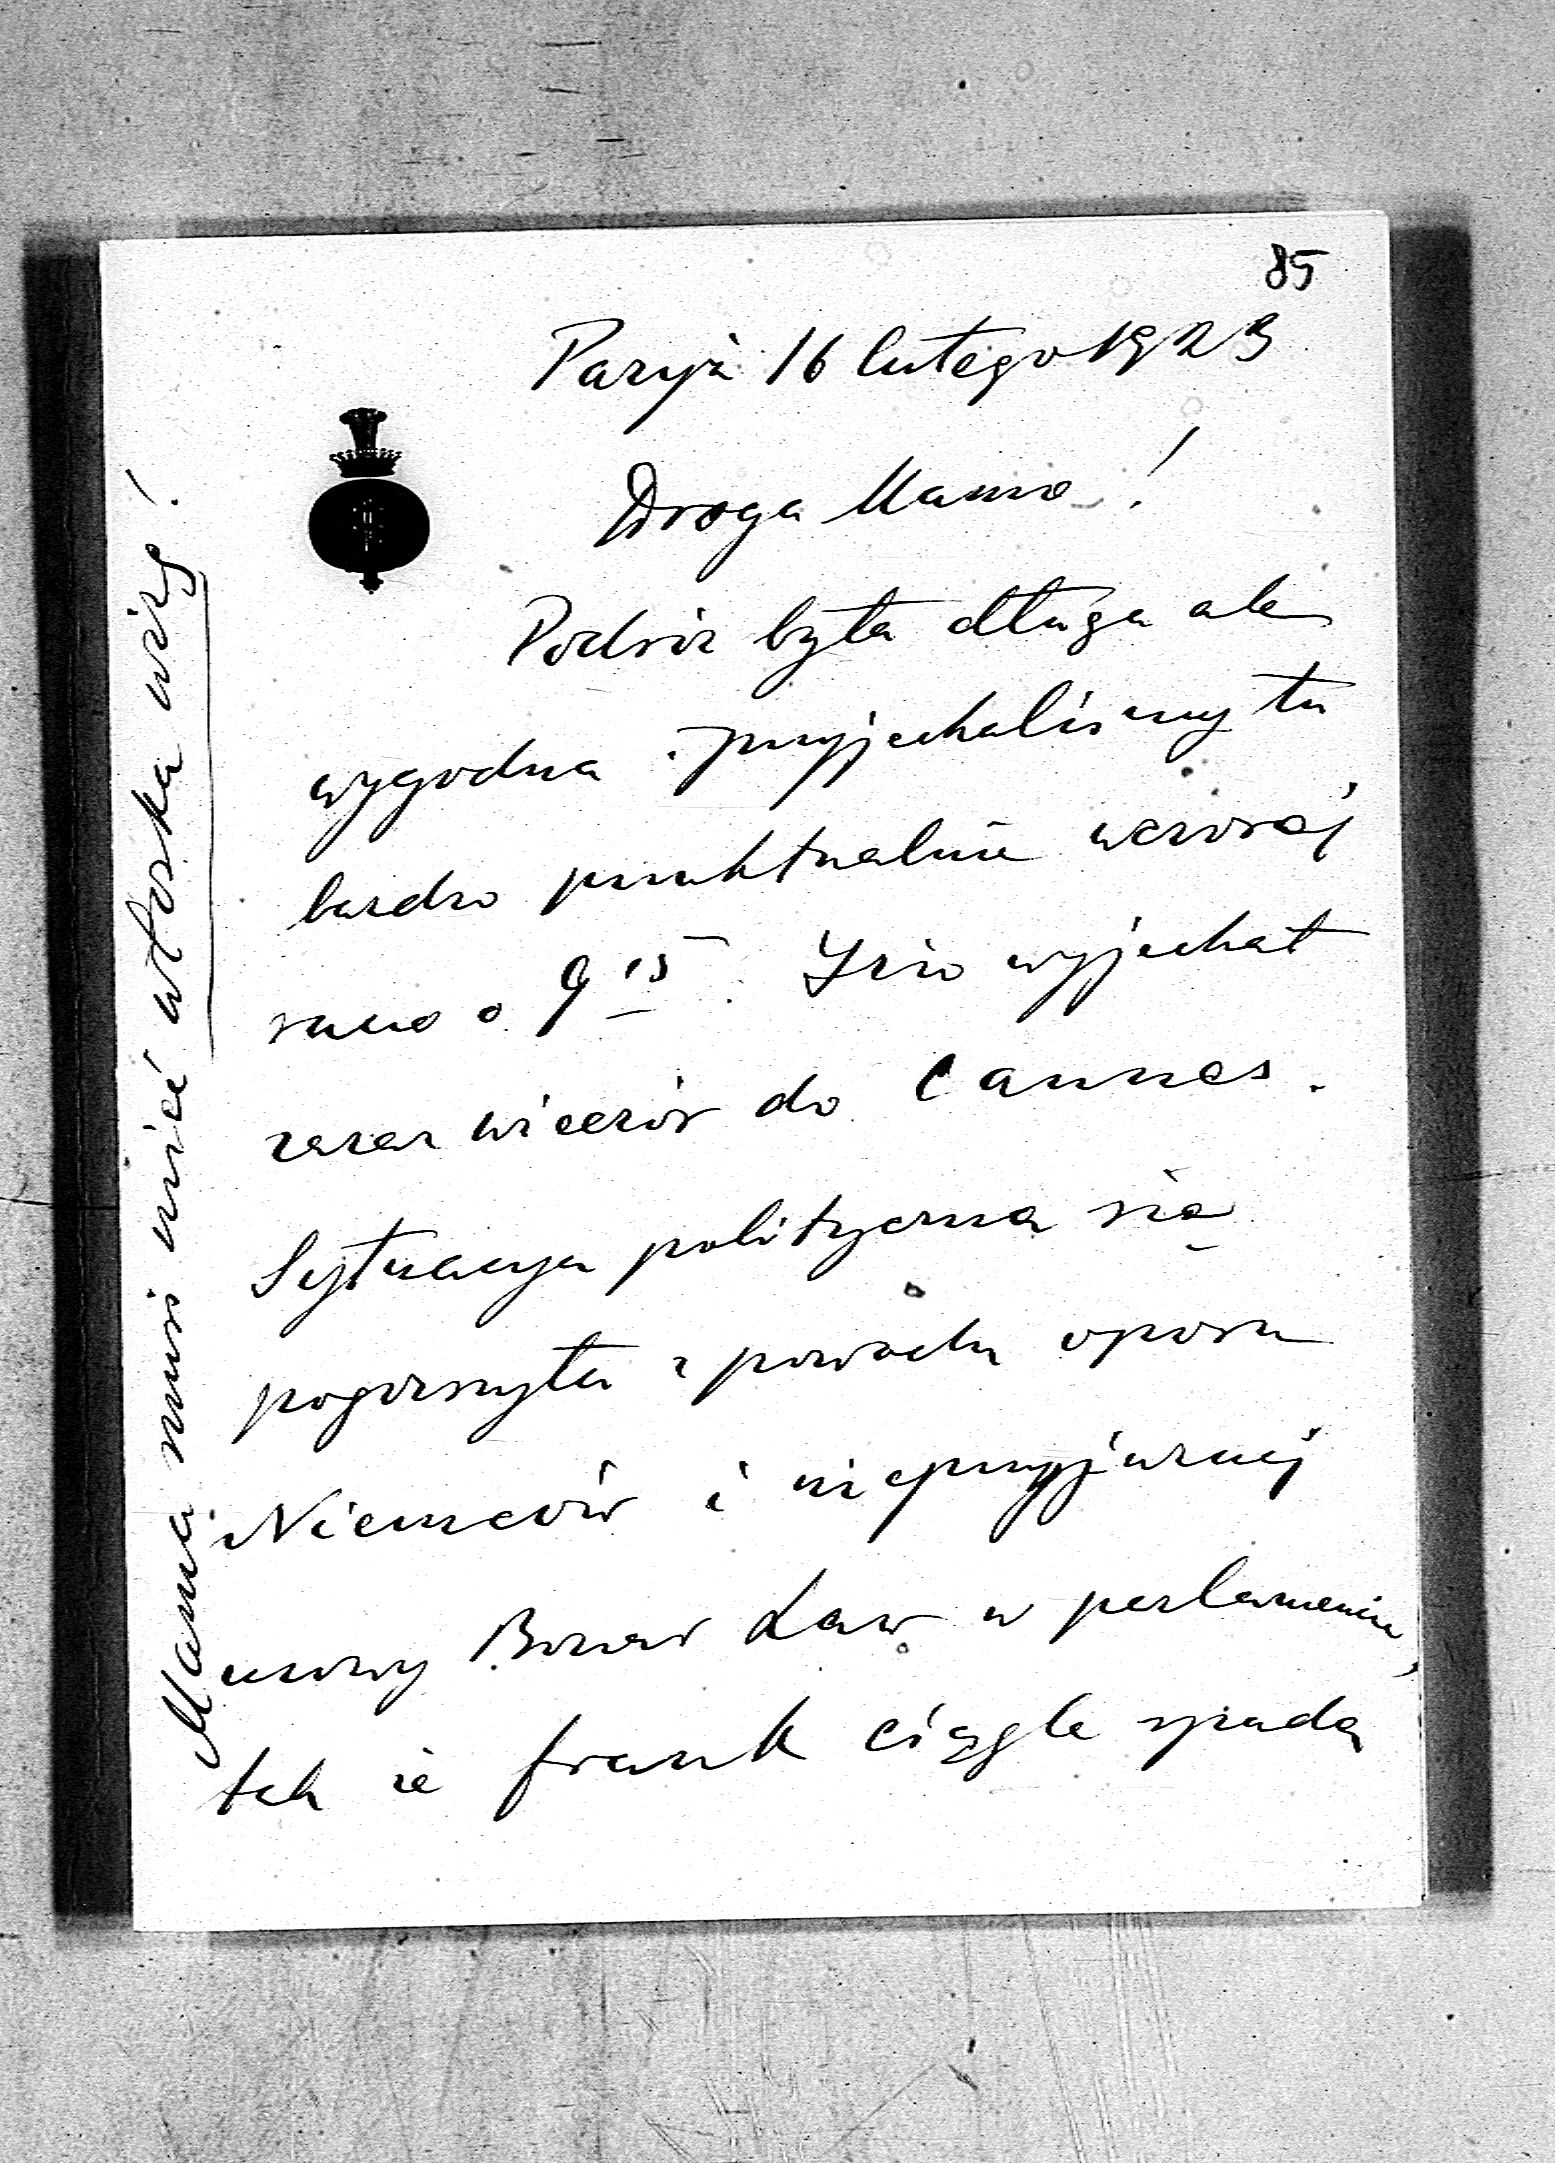 85
Paryż 16 lutego 1923
Droga Mamo!
Podróż była długa ale
wygodna. przyjechalismy tu
bardzo punktualnie wczoraj
rano o 9 15. Izio wyjechał
zaraz wieczór do Cannes.
Sytuacya polityczna się
pogorszyła z powodu oporu
Niemców i nieprzyjaznej
mowy Bonar Law w parlamencie,
tak że frank ciągle spada
Mama musi mieć włoską wizę!